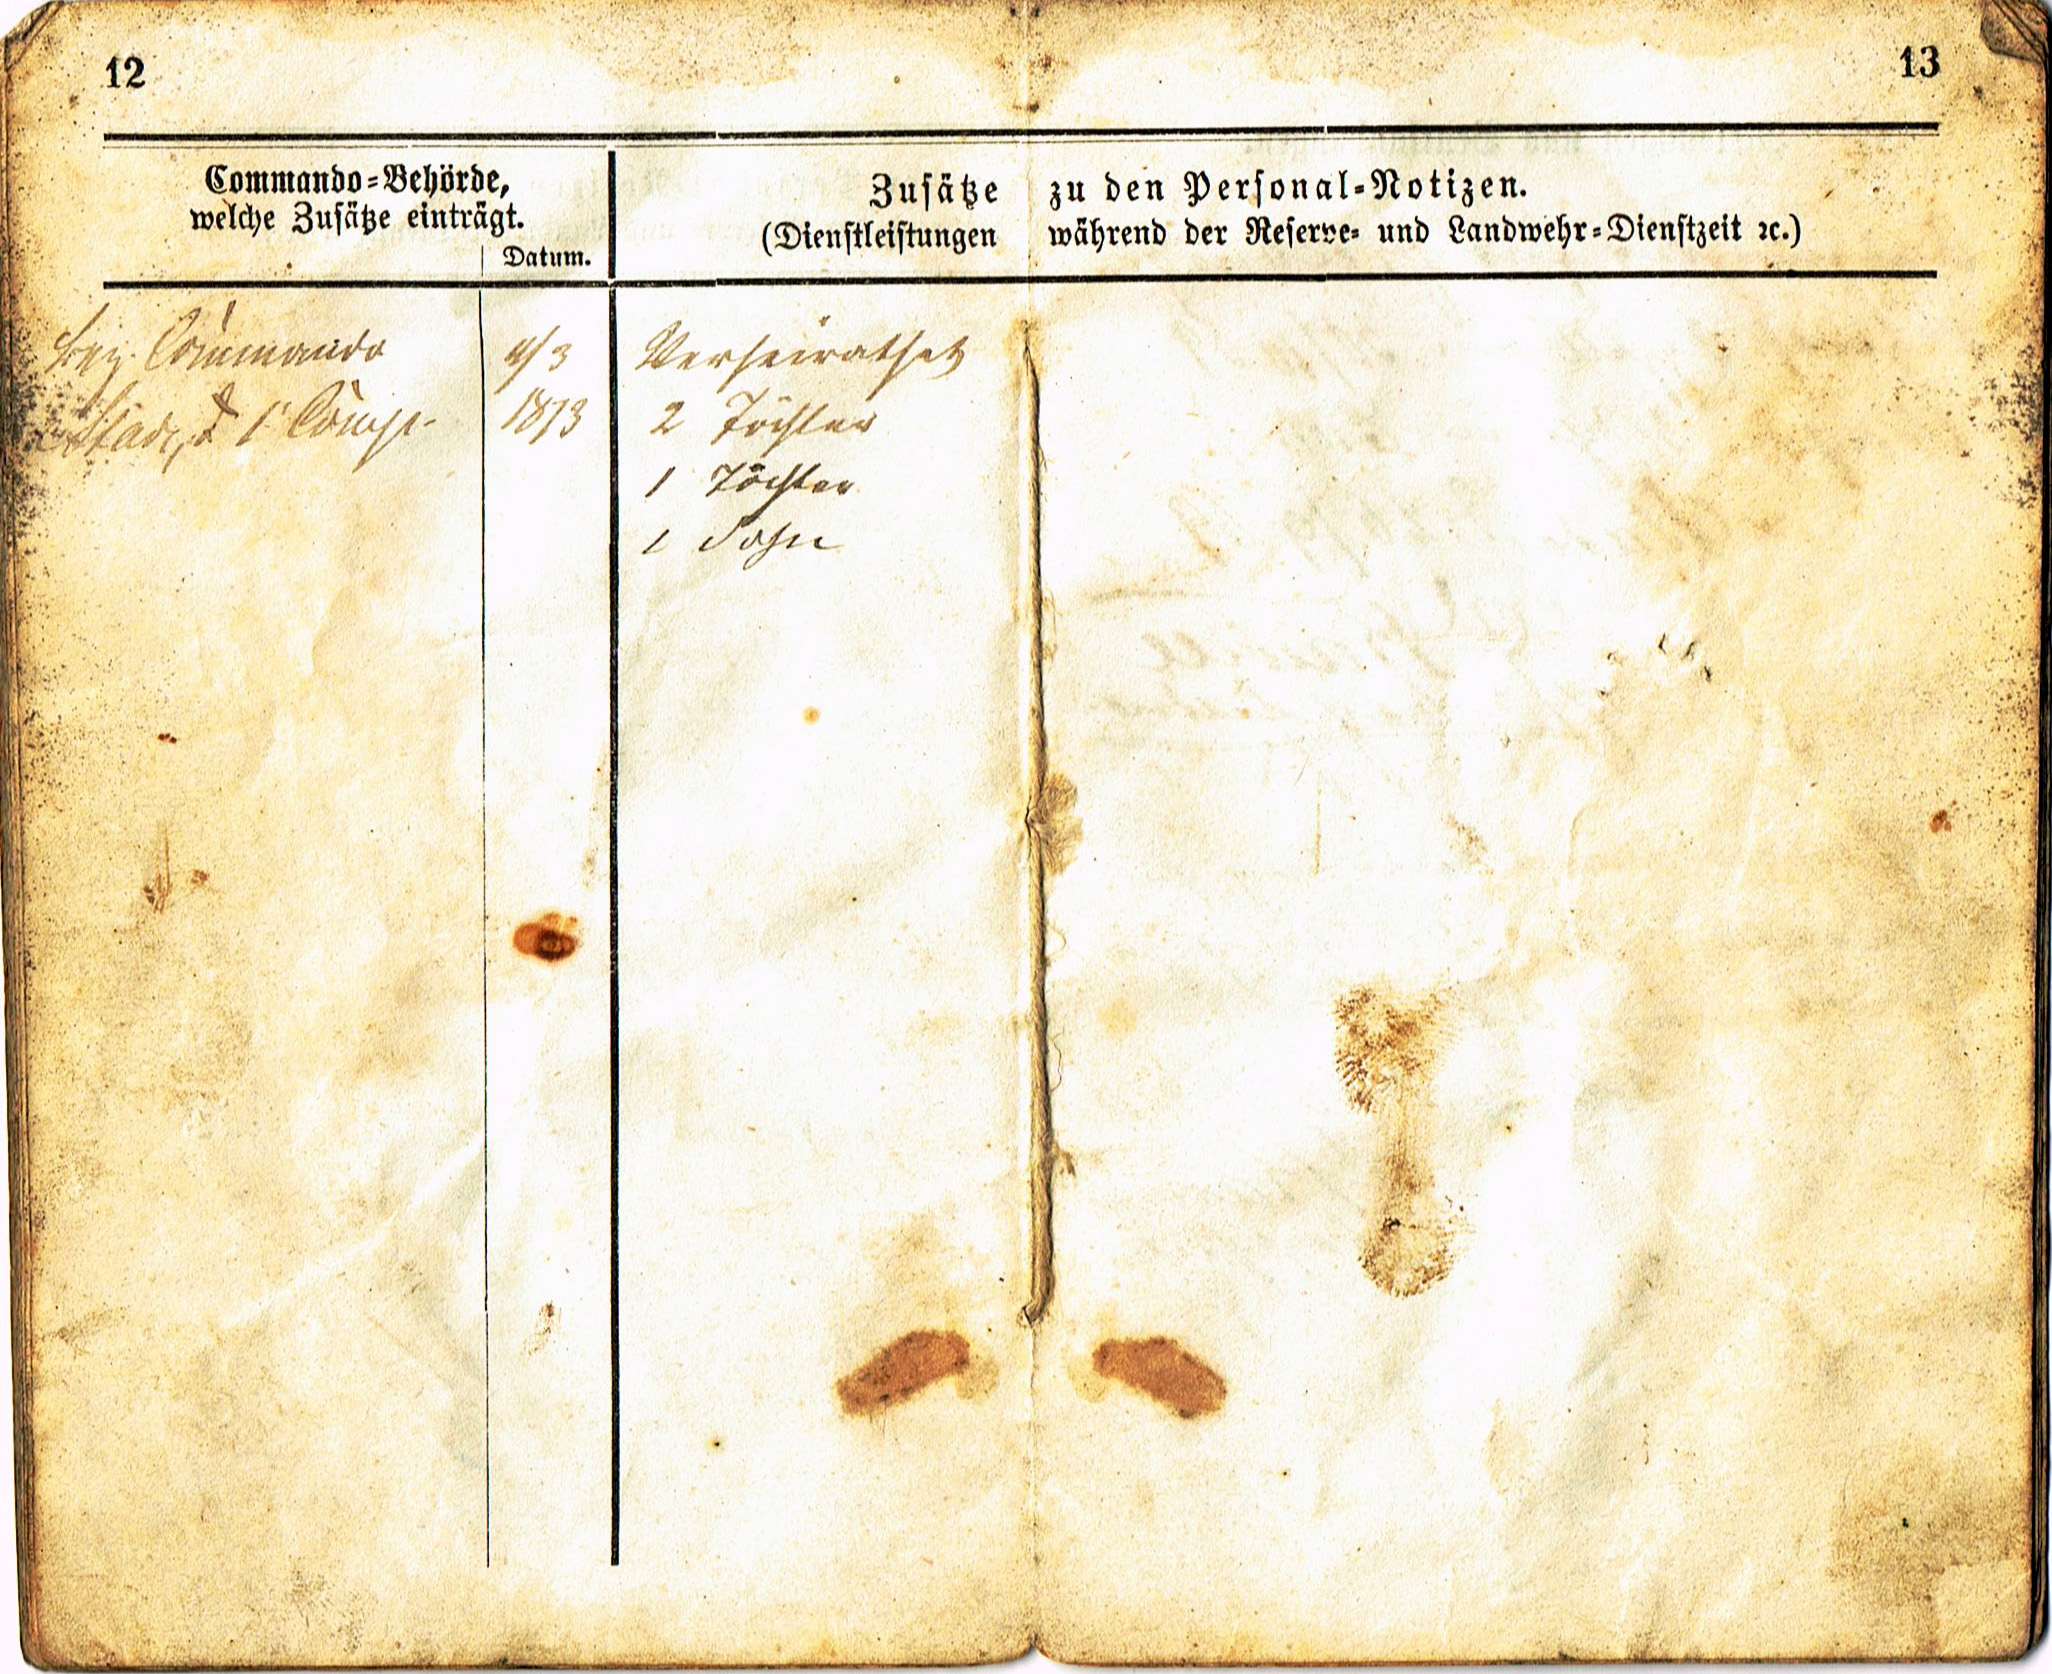 12
13
Commando=Behörde,
welche Zusätze einträgt.
Datum.
Zusätze zu den Personal=Notizen.
(Dienstleistungen während der Reserve= und Landwehr=Dienstzeit ꝛc.)
Bez. Commando
1 Comp.
1873
Verheirathet
2 Töchter
1 Töchter
1 Sohn